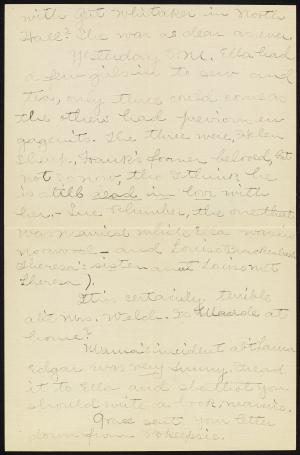 with Gat Whitaker in North
Hall? She was as dear as ever.
Yesterday P.M. Ella had
a few girls in to sew and
tea, only three could come as
the others had previous en-
gagem'ts. The three were, Helen
Sharp, Frank's former beloved, but
not so now, tho' I think he
is still dead in love with
her, - Sue the one that
was married while Ella was in
Norwood - and Louise
Theresa's sister as at Louise not
Theresa).
It is certainly terrible
ab't Mrs. Welch. Is Maude at
home?
Mama's incident ab't Laura
Edgar was very funny. I read
it to Ella and she that you
should write a book, mamie.
Grace sent your letter
down from Po'keepsie.